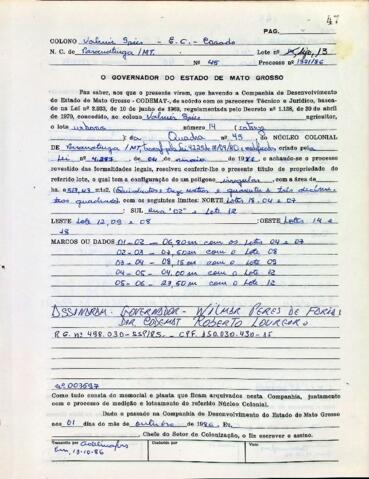 47
PAG.
COLONO Valmir Spies - B.C. - Casado
N. C. de Paranatinga/MT. Lote nº 13
Nº 45 Processo nº 1321/86
O GOVERNADOR DO ESTADO DE MATO GROSSO
Faz saber, aos que o presente virem, que havendo a Companhia de Desenvolvimento
do Estado de Mato Grosso - CODEMAT-, de acordo com os pareceres Técnico e Jurídico, basea-
da na Lei nº 2.923, de 10 de junho de 1969, regulamentada pelo Decreto nº 1.138, de 29 de abril
de 1970, concedido, ao colono Valmir Spies agricultor,
o lote urbano número 14
da Quadra nº 45 do NÚCLEO COLONIAL
DE Paranatinga/MT, criado pela
Lei nº de de maio de 1986, e achando-se o processo
revestido das formalidades legais, resolveu conferir-lhe o presente título de propriedade do
referido lote, o qual tem a configuração de um polígono irregular, com a área de
m2 (Quinhentos dezessete metros e quarenta e três decíme-
tros quadrados) com os seguintes limites: NORTE Lotes 18-04 e 07
: SUL Rua "02" e Lote 12
LESTE Lote 12, 09 e 08 : OESTE Lotes 14 e
18
MARCOS OU DADOS 01-02 - 06,80 m com os Lotes 04 e 07
02-03 - 07,50 m com o Lote 08
03-04 - 08,15 m com o Lote 09
04-05 - 04,00 m com o Lote 12
05-06 - 23,50 m com o Lote 12
ASSINARAM: GOVERNADOR - WILMAR PERES DE FARIAS
DIR CODEMAT ROBERTO LOUREIRO
R.G. nº 498.030-SSP/RS. - CPF. 150.030.430-15
nº 003697
Como tudo consta do memorial e planta que ficam arquivados nesta Companhia, juntamente
com o processo de medição e loteamento do referido Núcleo Colonial.
Dado e passado na Companhia de Desenvolvimento do Estado de Mato Grosso
aos 01 dias do mês de outubro de 1986. Eu,
Chefe do Setor de Colonização, o fiz escrever e assino.
Transcrito por
Em, 13-10-86
Conferido por
Visto